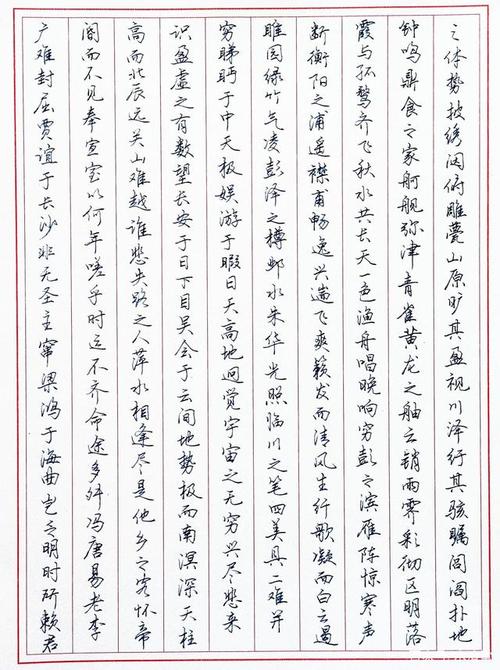 之体势披绣闼俯雕甍山原旷其盈视川泽纡其骇瞩闾阎扑地
钟鸣鼎食之家舸舰弥津青雀黄龙之舳云销雨霁彩彻区明落
霞与孤鹜齐飞秋水共长天一色渔舟唱晚响穷彭之滨雁阵惊寒声
断衡阳之浦遥襟甫畅逸兴遄飞爽籁发而清风生纤歌凝而白云遏
睢园绿竹气凌彭泽之樽邺水朱华光照临川之笔四美具二难并
穷睇眄于中天极娱游于暇日天高地迥觉宇宙之无穷兴尽悲来
识盈虚之有数望长安于日下目吴会于云间地势极而南溟深天柱
高而北辰远关山难越谁悲失路之人萍水相逢尽是他乡之客怀帝
阍而不见奉宣室以何年嗟乎时运不齐命途多舛冯唐易老李
广难封屈贾谊于长沙非无圣主窜梁鸿于海曲岂乏明时所赖君